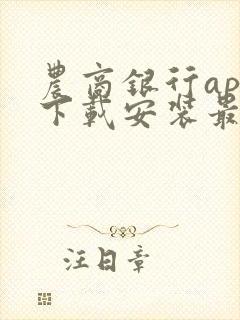 農商銀行ap
下載安裝最
汪日章